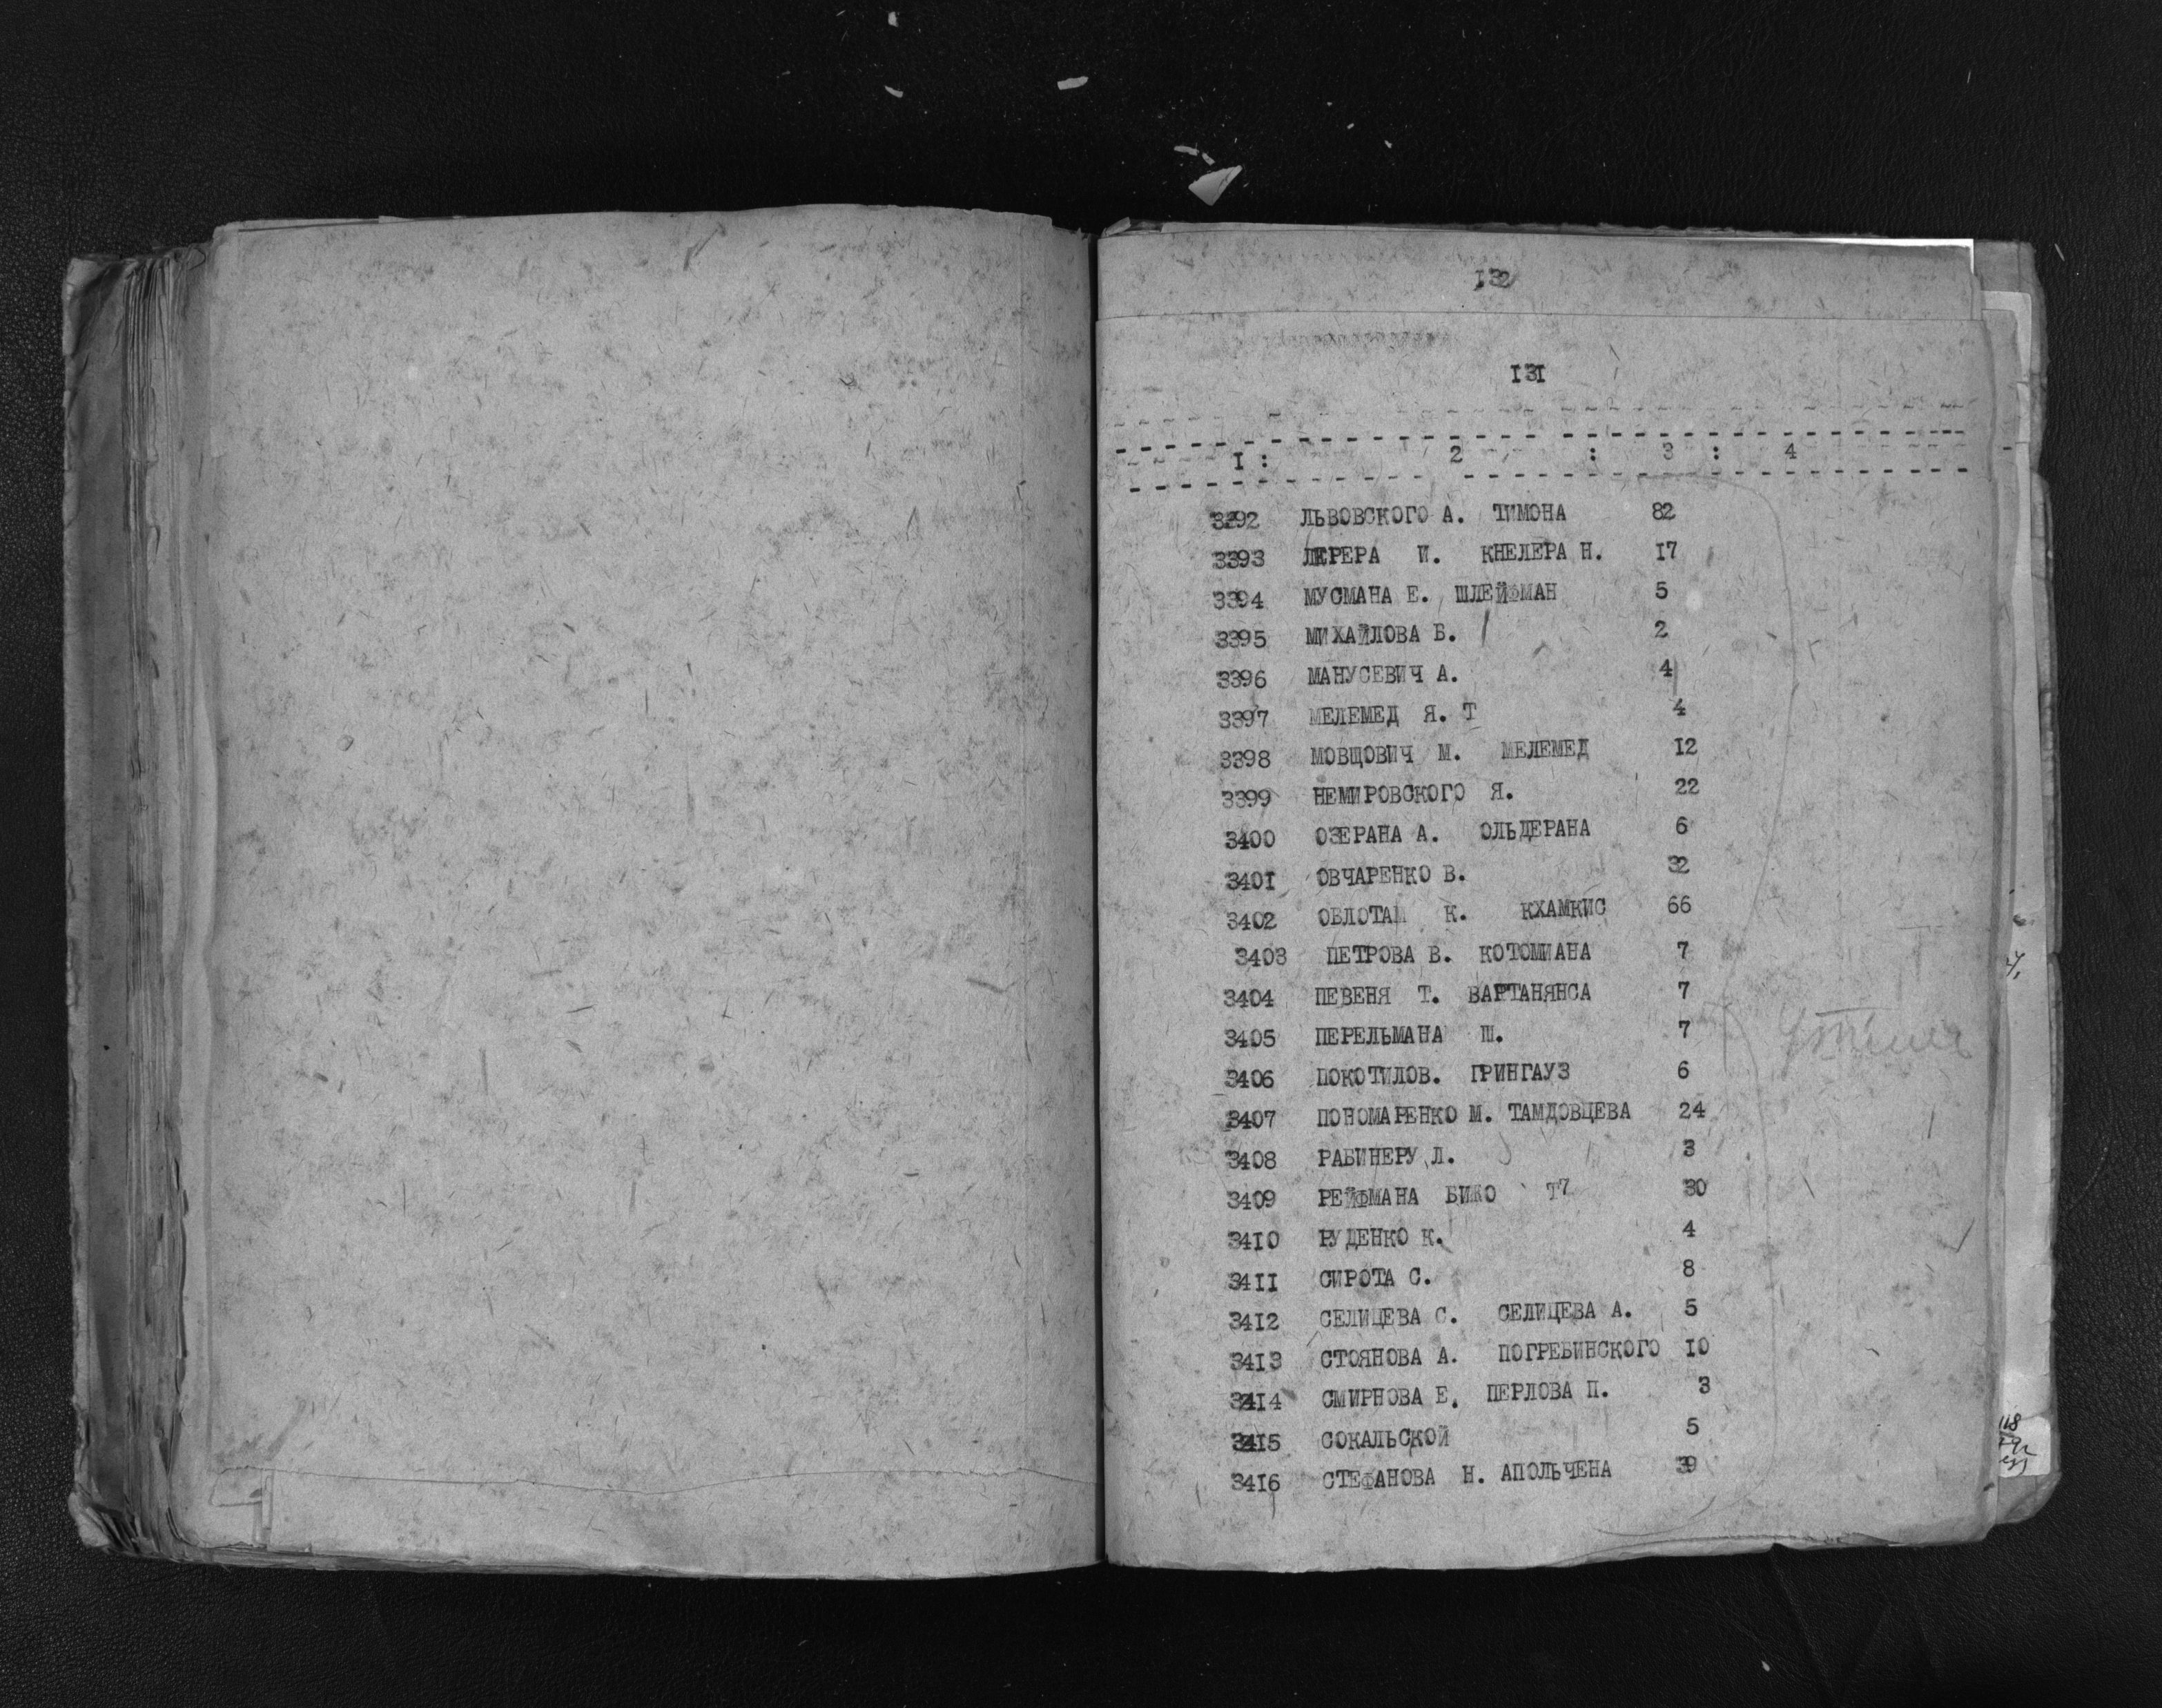 132
131
1 : 2 : 3 : 4
3392 ЛЬВОВСКОГО А. ТИМОНА 82
3393 ЛЕРЕРА И. КНЕЛЕРА Н. 17
3394 МУСМАНА Е. ШЛЕЙФМАН 5
3395 МИХАЙЛОВА Б. 2
3396 МАНУСЕВИЧ А. 4
3397 МЕЛЕМЕД Я. Т 4
3398 МОВЩОВИЧ М. МЕЛЕМЕД 12
3399 НЕМИРОВСКОГО Я. 22
3400 ОЗЕРАНА А. ОЛЬДЕРАНА 6
3401 ОВЧАРЕНКО В. 32
3402 К. КХАМКИС 66
3403 ПЕТРОВА В. КОТОМИАНА 7
3404 ПЕВЕНЯ Т. ВАРТАНЯНСА 7
3405 ПЕРЕЛЬМАНА Ш. 7
3406 ПОКОТИЛОВ. ГРИНГАУЗ 6
3407 ПОНОМАРЕНКО М. ТАМДОВЦЕВА 24
3408 РАБИНЕРУ Л. 3
3409 РЕЙФМАНА БИЖО Т7 30
3410 РУДЕНКО К. 4
3411 СИРОТА С. 8
3412 СЕЛИЦЕВА С. СЕЛИЦЕВА А. 5
3413 СТОЯНОВА А. ПОГРЕБИНСКОГО 10
3414 СМИРНОВА Е. ПЕРЛОВА П. 3
3415 СОКАЛЬСКОЙ 5
3416 СТЕФАНОВА Н. АПОЛЬЧЕНА 39